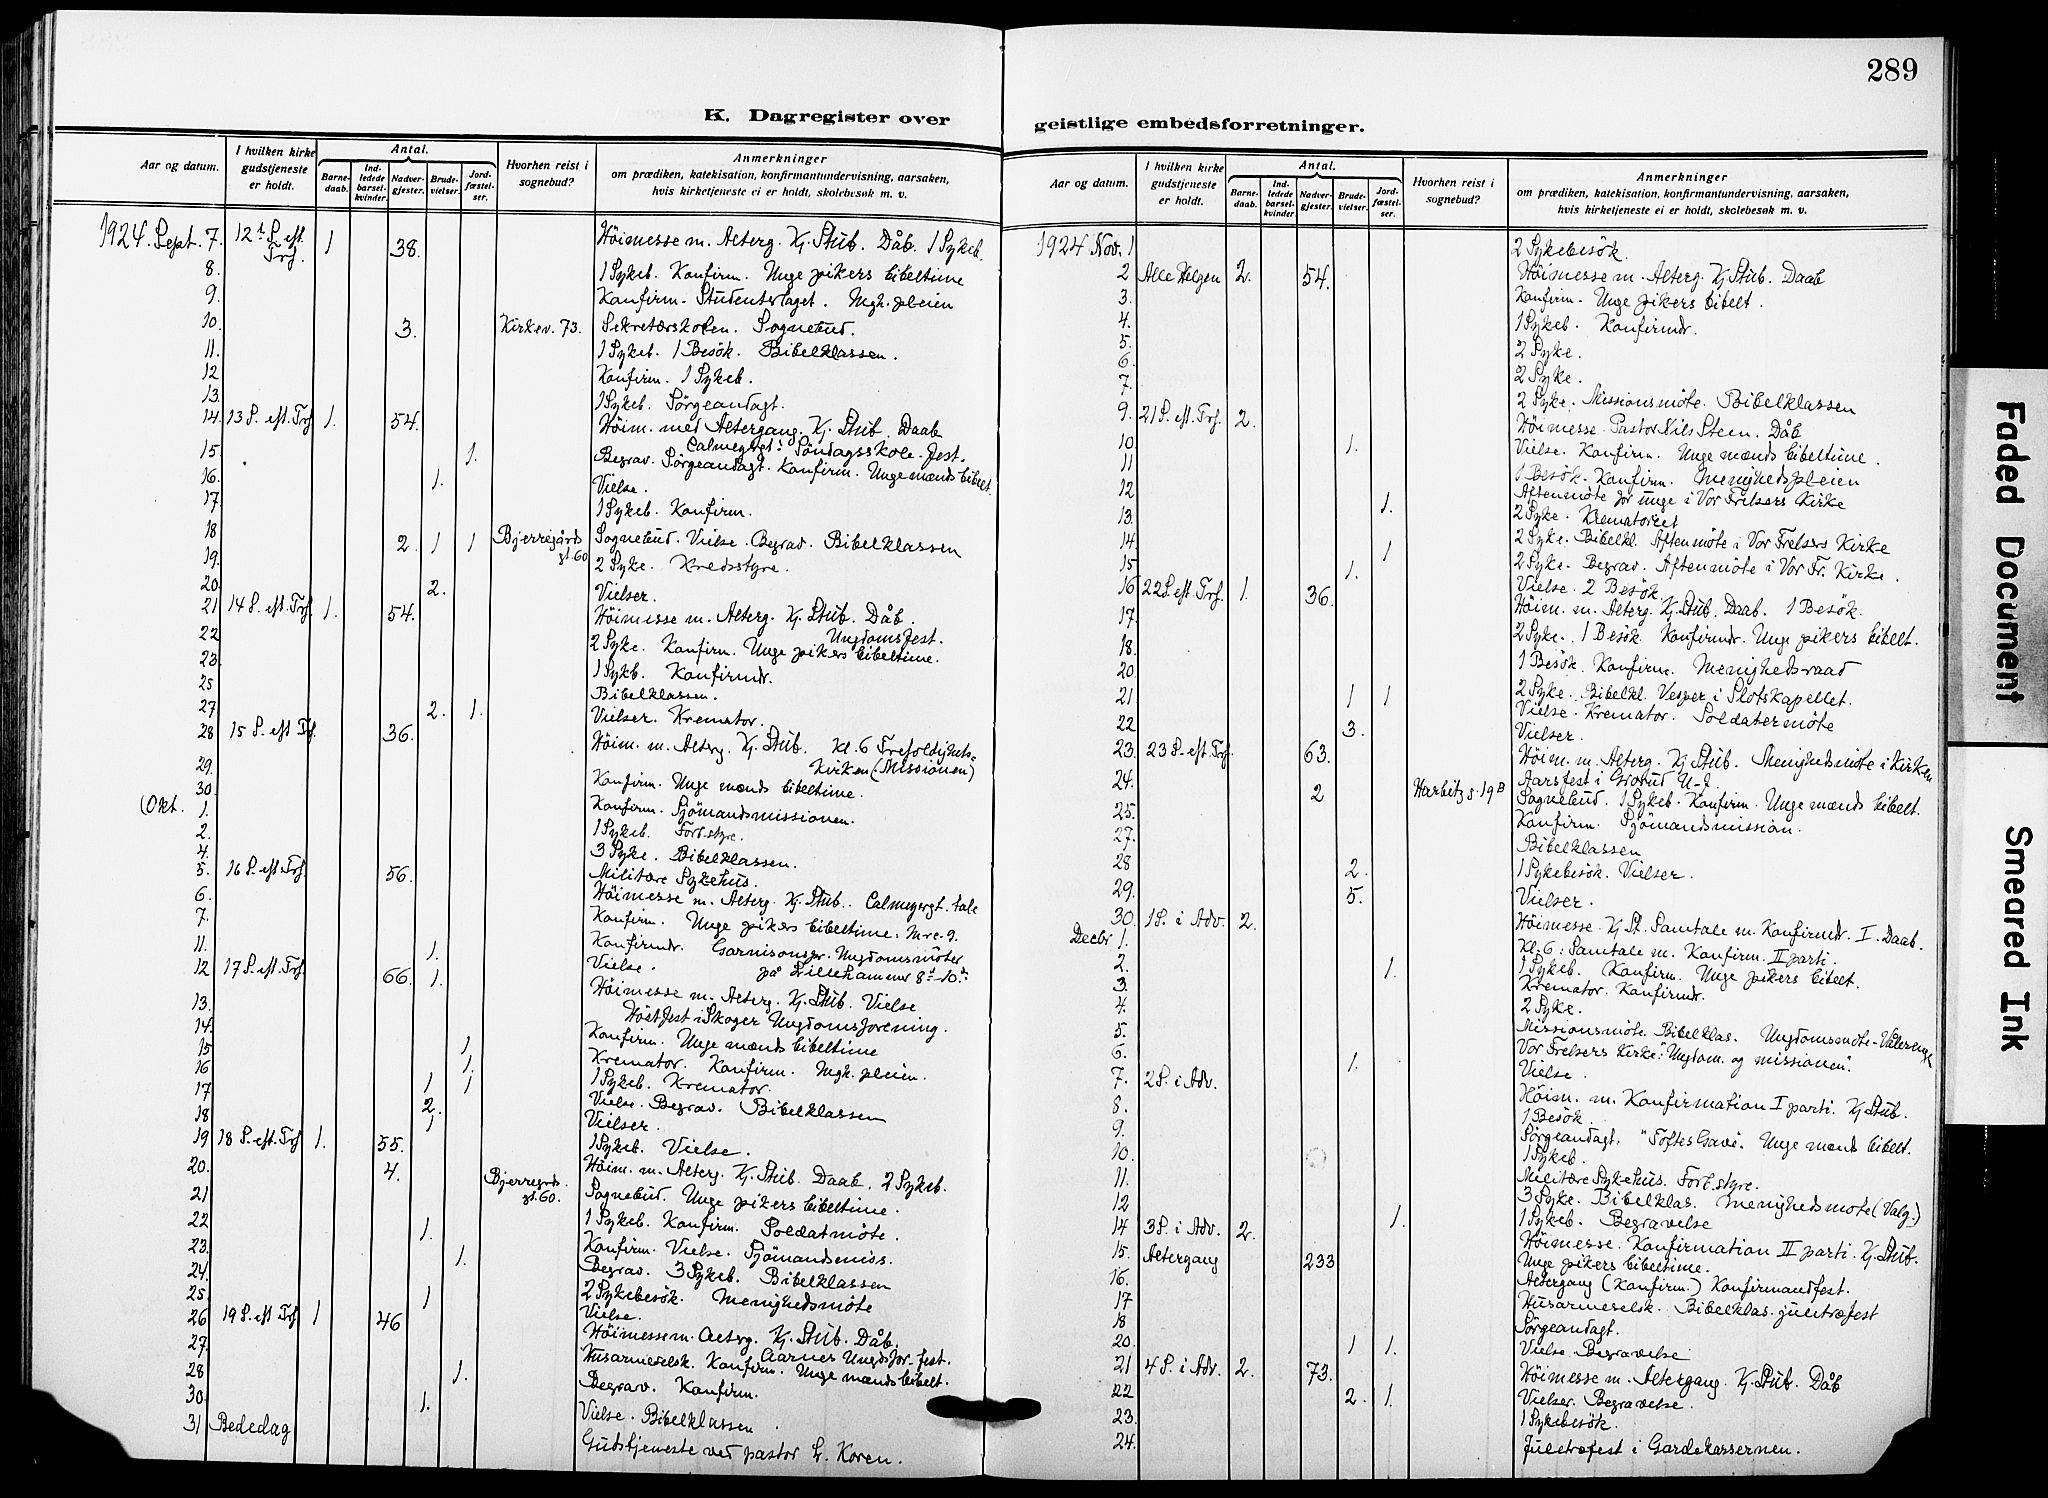 289
K. Dagregister over geistlige embedsforretninger.
Aar og datum.
I hvilken kirke gudstjeneste er holdt.
Antal.
Barne-daab.
Ind-ledede barsel-kvinder.
Nadver-gjester.
Brude-vielser.
Jord-fæstel-ser.
Hvorhen reist i sognebud?
Anmerkninger
om prædiken, katekisation, konfirmantundervisning, aarsaken,
hvis kirketjeneste ei er holdt, skolebesøk m. v.
1924. Sept. 7. 12te S. eft. Trf. 1 38. Höimesse m. Alterg. Kj. Stub. Dåb. 1 Sykeb.
8. 1 Sykeb. Konfirm. Unge pikers bibeltime
9. Konfirm. Studenterlaget. Mgh.pleien
10 3. Kirkev. 73. Sekretærskolen. Sognebud.
11. 1 Sykeb. 1 Besök. Bibelklassen.
12 Konfirm. 1 Sykeb.
13. 1 Sykeb. Sörgeandagt.
14. 13 S. eft. Trf. 1. 54. Höim. med Altergang. Kj. Stub. Daab
Calmeyergt: Söndagsskole-fest.
15 1. Begrav. Sörgeandagt. Konfirm. Unge mænds bibelt.
16. 1. Vielse.
17. 1 Sykeb. Konfirm.
18 2. 1 1 Bjerregårds gt. 60 Sognebud. Vielse. Begrav. Bibelklassen
19. 2 Syke. Kredsstyre.
20. 2. Vielser.
21 14 S. eft. Trf. 1. 54. Höimesse m. Alterg. Kj. Stub. Dåb.
Ungdomsfest.
22 2 Syke. Konfirm. Unge pikers bibeltime.
23. 1 Sykb. Konfirmdr.
25 Bibelklassen.
27 2. 1. Vielser. Kremator.
28 15 S. eft Trf. 36. Höim. m. Alterg. Kj. Stub. Kl. 6 Trefoldighets-
Kirken (Missionen)
29. Konfirm. Unge mænds bibeltime.
30 Konfirm. Sjömandsmissionen.
Okt. 1. 1 Sykeb. Forb.styre.
2. 3 Syke. Bibelklassen.
4. Militære Sykehus.
5. 16 S. eft. Trf. 56. Höimesse m. Alterg. Kj. Stub. Calmeyergt. tale
6. Konfirm. Unge pikers bibeltime.
7. Konfirmdr. Garnisonspr. Ungdomsmöter
på Lillehammer 8de-10de
11. 1. Vielse.
12 17 S. eft. Trf. 66. 1. Höimesse m. Alterg. Kj. Stub. Vielse
Höstfest i Skoger Ungdomsforening.
13. Konfirm. Unge mænds bibeltime
14. Kremator. Konfirm. Mgh. pleien.
15 1. 1 Sykeb. Kremator.
16 1. Vielse. Begrav. Bibelklassen
17 1 1 Vielser.
18 2. 1 Sykeb. Vielse.
19 18 S. eft. Trf 1. 55. Höim. m. Alterg. Kj. Stub. Daab. 2 Sykeb.
20. 4. Bjerregrds. gt. 60. Sognebud. Unge pikers bibeltime.
21 1 Sykeb. Konfirm. Soldatmöte.
22 1. Konfirm. Vielse. Sjömandsmiss.
23. 1. Begrav. 3 Sykeb. Bibelklassen
24. 2 Sykebesök. Menighedsmöte
25. 1 Vielse.
26 19 S. eft Trf 1 46 Höimesse m. Alterg. Kj. Stub. Dåb.
Aarnes Ungdsfor-fest.
27. Husarmeselsk. Konfirm. Unge mænds bibelt.
28 1. Begrav. Konfirm.
30 1. Vielse. Bibelklassen
31 Bededag Gudstjeneste ved pastor L. Koren.
Aar og datum.
I hvilken kirke gudstjeneste er holdt.
Antal.
Barne-daab.
Ind-ledede barsel-kvinder
Nadver-gjester.
Brude-vielser.
Jord-fæstel-ser.
Hvorhen reist i sognebud?
Anmerkninger
om prædiken, katekisation, konfirmantundervisning, aarsaken,
hvis kirketjeneste ei er holdt, skolebesøk m. v.
1924 Nov. 1 2 Sykebesök.
2 Alle Helgen 2. 54. Höimesse m. Alterg. Kj. Stub. Daab
3. Konfirm. Unge pikers bibelt.
4. 1 Sykeb. Konfirmdr.
5. 2 Syke.
6 2 Syke.
7. 2 Syke. Missionsmöte. Bibelklassen
9. 21 S. eft. Trf. 2. Höimesse. Pastor Nils Steen. Dåb
10 1. Vielse. Konfirm. Unge mænds bibeltime.
11 1 Besök. Konfirm. Menighedspleien
12 Aftenmöte for unge i Vor Frelsers Kirke
13. 1. 2 Syke. Krematoriet
14. 2 Syke. Bibelkl. Aftenmöte i Vor Frelsers Kirke
15 1. 1 2 Syke. Begrav. Aftenmöte i Vor Fr. Kirke.
Vielse. 2 Besök.
16 22 S. eft. Trf. 1. 36. Höim. m. Alterg. Kj. Stub. Daab. 1 Besök.
17. 2 Syke. 1 Besök. Konfirmdr. Unge pikers bibelt.
18. 1 Besök. Konfirm. Menighedsraad
20. 2 Syke. Bibelkl. Vesper i Slotskapellet.
21 1 1 Vielse. Kremator. Soldatermöte
22 3. Vielser.
23. 23 S. eft. Trf. 63. Höim. m. Alterg. Kj. Stub. Menighedsmöte i Kirken
Aarsfest i Grorud U-f.
24. 2 Harbitz s. 19B Sognebud. 1 Sykeb. Konfirm. Unge mænds bibelt.
25. Konfirm. Sjömandsmission.
27. Bibelklassen
28 2. 1 Sykebesök. Vielser.
29. 5. Vielser.
30. 1 S. i Adv. 2. Höimesse. Kj. St. Samtale m. Konfirmdr. I. Daab.
Kl. 6: Samtale m. Konfirm. II parti.
Decbr 1. 1 Sykeb. Konfirm. Unge pikers bibelt.
2. 1. Kremator. Konfirmdr.
3. 2 Syke.
4. Missionsmöte. Bibelklas. Ungdomsmöte-Vålereng
5. Vor Frelsers Kirke: "Ungdom. og missionen".
6. 1. Vielse.
7. 2 S. i Adv. Höim. m. Konfirmation I parti. Kj. Stub.
8. 1 Besök.
Sörgeandagt. "Toftes Gave. Unge mænds bibelt.
9. 1 Sykeb.
10. Militære Sykehus. Forb. styre.
11. 3 Syke. Bibelklas. Menighedsmöte (Valg.)
12 1. 1 Sykeb. Begravelse
14 3 S. i Adv. 2. Höimesse. Konfirmation II parti. Kj. Stub.
15. Altergang 233 Unge pikers bibeltime.
Altergang (Konfirm.) Konfirmandfest.
16. Husarmeselsk. Bibelklas. juletræfest
17
18 Sörgeandagt.
20. 1 1. Vielse Begravelse
21 4 S. i Adv. 2. 73. Höimesse m. Altergang. Kj. Stub. Dåb
22 2. 1. Vielser. Begravelse.
23. 1 Sykebesök.
24. Juletræfest i Gardekassernen.
Faded Document
Smeared Ink